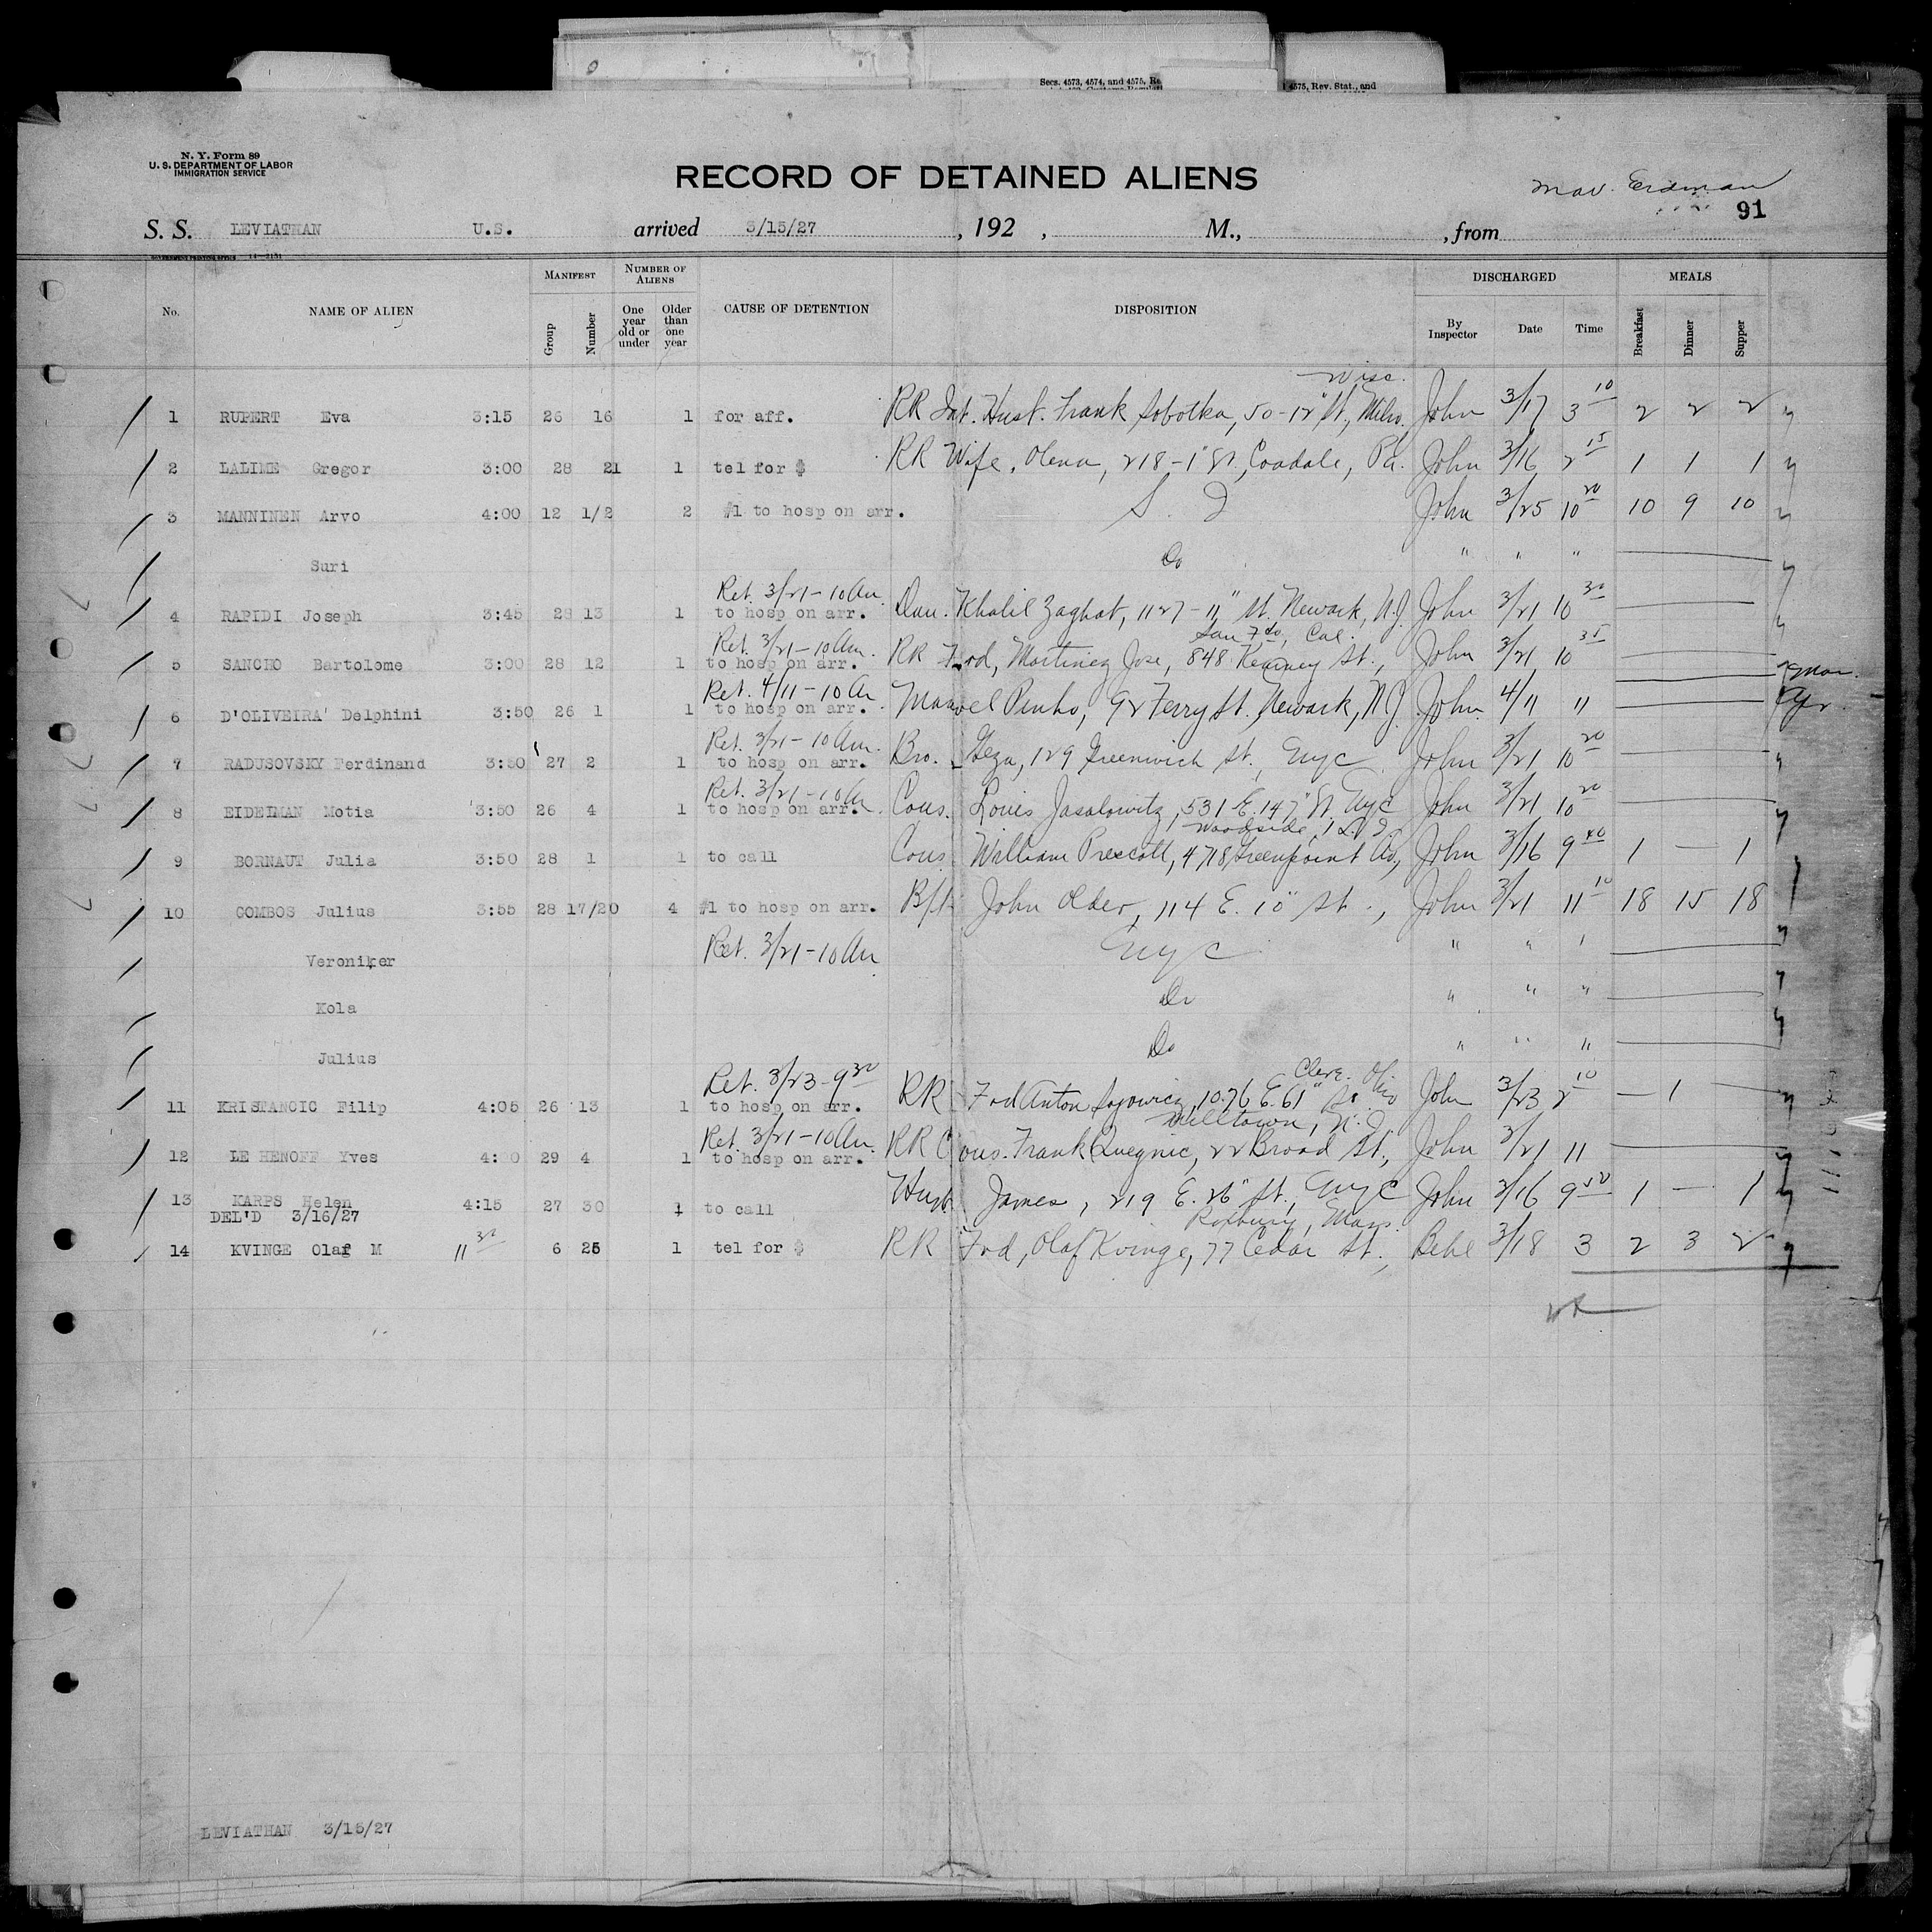 Secs. 4573, 4574, and 4575, Re
4575, Rev. Stat., and
N. Y. Form 89
U. S. DEPARTMENT OF LABOR
IMMIGRATION SERVICE
RECORD OF DETAINED ALIENS
Mav. Erdman
91
S. S. LEVIATHAN U.S. arrived 3/15/27, 192 , M., , from
GOVERNMENT PRINTING OFFICE 14—2151
No. NAME OF ALIEN MANIFEST Group Number NUMBER OF ALIENS One year old or under Older than one year CAUSE OF DETENTION DISPOSITION DISCHARGED By Inspector Date Time MEALS Breakfast Dinner Supper
Wisc.
1 RUPERT Eva 3:15 26 16 1 for aff. RR Int. Husb. Frank Sobotka, 50-12" St., Milw. John 3/17 3 10 2 2 2
2 LALIME Gregor 3:00 28 21 1 tel for $ RR Wife, Olena, 218-1" St, Coadale, Pa. John 3/16 2 15 1 1 1
3 MANNINEN Arvo 4:00 12 1/2 2 #1 to hosp on arr. S. I John 3/25 10 20 10 9 10
Suri Do " " "
Ret. 3/21-10 Am.
4 RAPIDI Joseph 3:45 28 13 1 to hosp on arr. Khalil Zaghat, 1127-11" St. Newark, N.J. John 3/21 10 30
Ret. 3/21-10 Am. San Fdo, Cal.
5 SANCHO Bartolome 3:00 28 12 1 to hosp on arr. RR Frd, Martinez Jose, 848 Kearney St., John 3/21 10 35
Ret. 4/11-10 Am Mar.
6 D'OLIVEIRA Delphini 3:50 26 1 1 to hosp on arr. Manoel Pinho, 92 Ferry St. Newark, N.J. John 4/11 11 Apr.
Ret. 3/21-10 Am.
7 RADUSOVSKY Ferdinand 3:50 27 2 1 to hosp on arr. Bro. Geza, 129 Greenwich St., NYC John 3/21 10 20
Ret. 3/21-10 Am
8 EIDELMAN Motia 3:50 26 4 1 to hosp on arr. Cous. Louis Jasalowitz, 531 E. 147" St. NYC John 3/21 10 20
Woodside, L.I
9 BORNAUT Julia 3:50 28 1 1 to call Cous William Prescott, 4718 Greenpoint Av, John 3/16 9 40 1 — 1
10 GOMBOS Julius 3:55 28 17/20 4 #1 to hosp on arr. John Older, 114 E. 10" St., John 3/21 11 10 18 15 18
Veroniker Ret. 3/21-10 Am NYC " " "
Kola Do " " "
Julius Do " " "
Ret. 3/23-9 30 Cleve. Ohio
11 KRISTANCIC Filip 4:05 26 13 1 to hosp on arr. RR Frd Anton 1076 E. 61" St John 3/23 2 10 — 1 —
Ret. 3/21-10 Am. Milltown, N.J.
12 LE HENOFF Yves 29 4 1 to hosp on arr. RR Cous. Frank Quegnic, 22 Broad St, John 3/21 11
13 KARPS Helen 4:15 27 30 1 to call Husb James, 219 E. 26" St., NYC John 3/16 9 50 1 — 1
DEL'D 3/16/27
Roxbury, Mass.
14 KVINGE Olaf M 11 30 6 25 1 tel for $ RR Frd, Olaf Kvinge, 77 Cedar St., Behe 3/18 3 2 3 2
LEVIATHAN 3/15/27